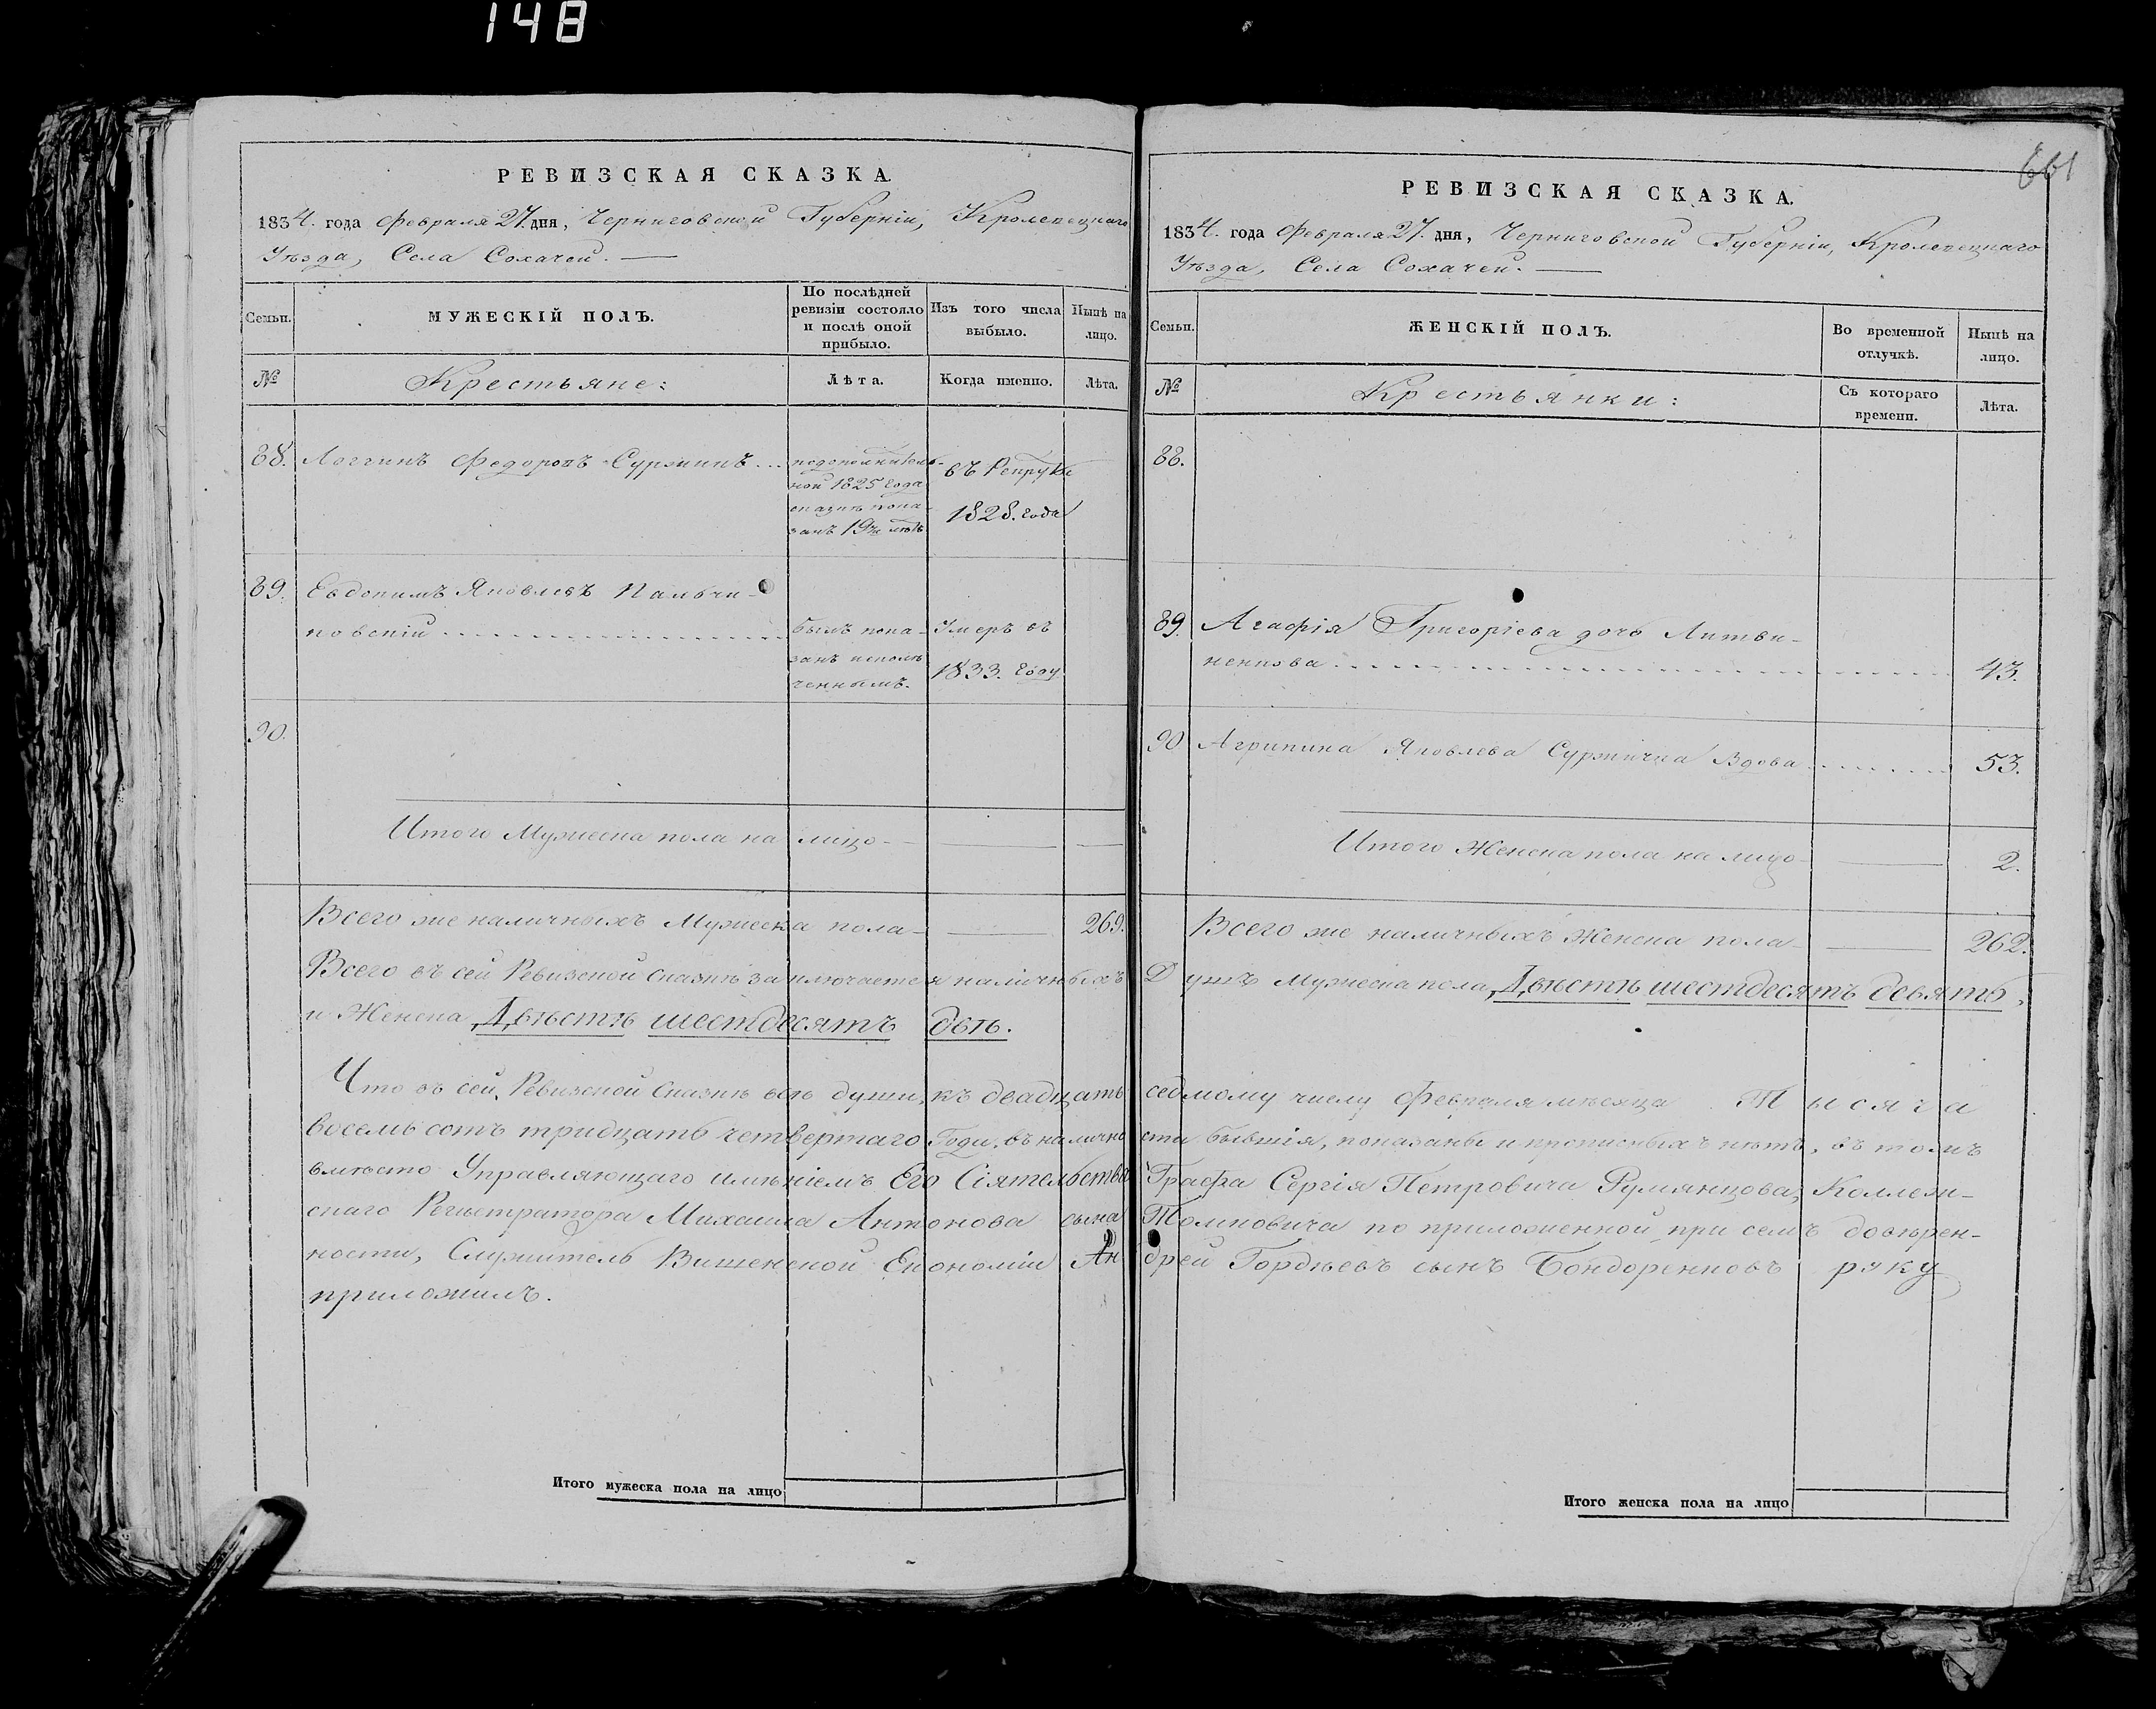 148
661
РЕВИЗСКАЯ СКАЗКА.
1834. года Февраля 27. дня, Черниговской Губерніи, Кролевецкаго
Уѣзда, Села Сохачей.
Семьи.
МУЖЕСКІЙ ПОЛЪ.
По послѣдней
ревизіи состояло
и послѣ оной
прибыло.
Изъ того числа
выбыло.
Нынѣ на
лицо.
№
Крестьяне:
Лѣта.
Когда именно.
Лѣта.
88. Логгинъ Федоровъ Суржикъ...
подополнитель-
ной 1825 года
сказкѣ пока
занъ 19ти лѣтъ
въ Рекруты
1828. года
89. Евдокимъ Яковлевъ Пальчи-
ковскій
былъ пока-
занъ
Умеръ въ
1833. году
90.
Итого Мужеска пола на лицо-
Всего же наличныхъ Мужеска пола- 269.
Всего въ сей Ревизской Сказкѣ заключается наличныхъ
и Женска Двѣстѣ шестдесятъ двѣ.
Что въ сей Ревизской Сказкѣ всѣ души, къ двадцать
восемь сотъ тридцать четвертаго Года, въ налично
вмѣсто Управляющаго имѣніемъ Его Сіятельства
скаго Регистратора Михаила Антонова сына
ности, Служитель Вишенской Економіи Ан
приложилъ.
Итого мужеска пола на лицо
РЕВИЗСКАЯ СКАЗКА.
1834. года Февраля 27. дня, Черниговской Губерніи, Кролевецкаго
Уѣзда, Села Сохачей.
Семьи.
ЖЕНСКІЙ ПОЛЪ.
Во временной
отлучкѣ.
Нынѣ на
лицо.
№
Крестьянки:
Съ котораго
времени.
Лѣта.
88.
89. Агафія Григоріева дочь Литви-
ненкова 43.
90 Агрипина Яковлева Суржичка Вдова 53.
Итого Женска пола на лицо- 2.
Всего же наличныхъ Женска пола- 262.
Душъ Мужеска пола, Двѣстѣ шестдесятъ девять,
седмому числу Февраля мѣсяца Тысяча
сти бывшія, показаны и прописныхъ нѣтъ, въ томъ
Графа Сергія Петровича Румянцова, Коллеж-
Толковича по приложенной при семъ довѣрен-
дрей Гордѣевъ сынъ Бондоренковъ руку
Итого женска пола на лицо